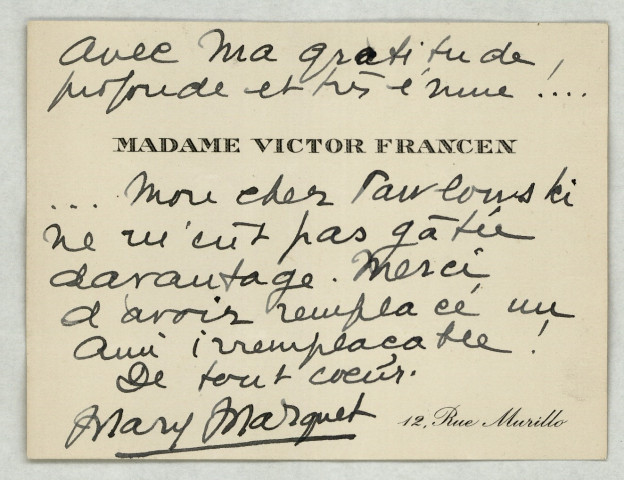 Avec Ma gratitude,
profonde et très émue !....
MADAME VICTOR FRANCEN
... Mon cher Pawlowski
ne m'eût pas gâtée
davantage. Merci
d'avoir remplacé un
Ami irremplaçable !
De tout coeur.
Mary Marquet
12, Rue Murillo